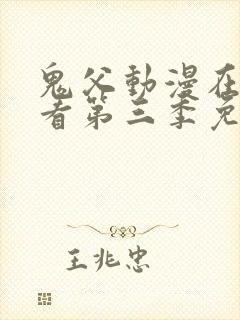 鬼父動漫在
看第三季免
王兆忠